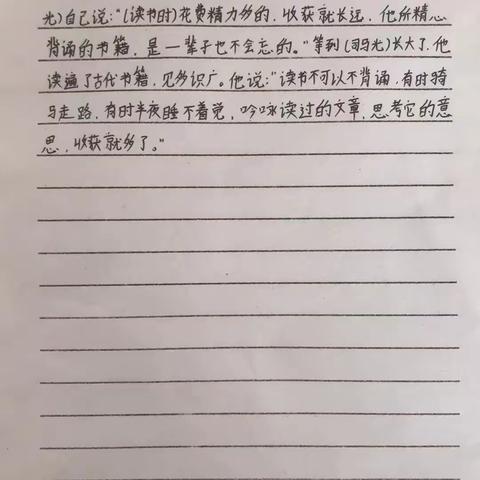 光)自己说:“(读书时)花费精力多的,收获就长远,他所精心
背诵的书籍,是一辈子也不会忘的。”等到(司马光)长大了,他
读遍了古代书籍,见多识广。他说:“读书不可以不背诵,有时骑
马走路,有时半夜睡不着觉,吟咏读过的文章,思考它的意
思,收获就多了。”